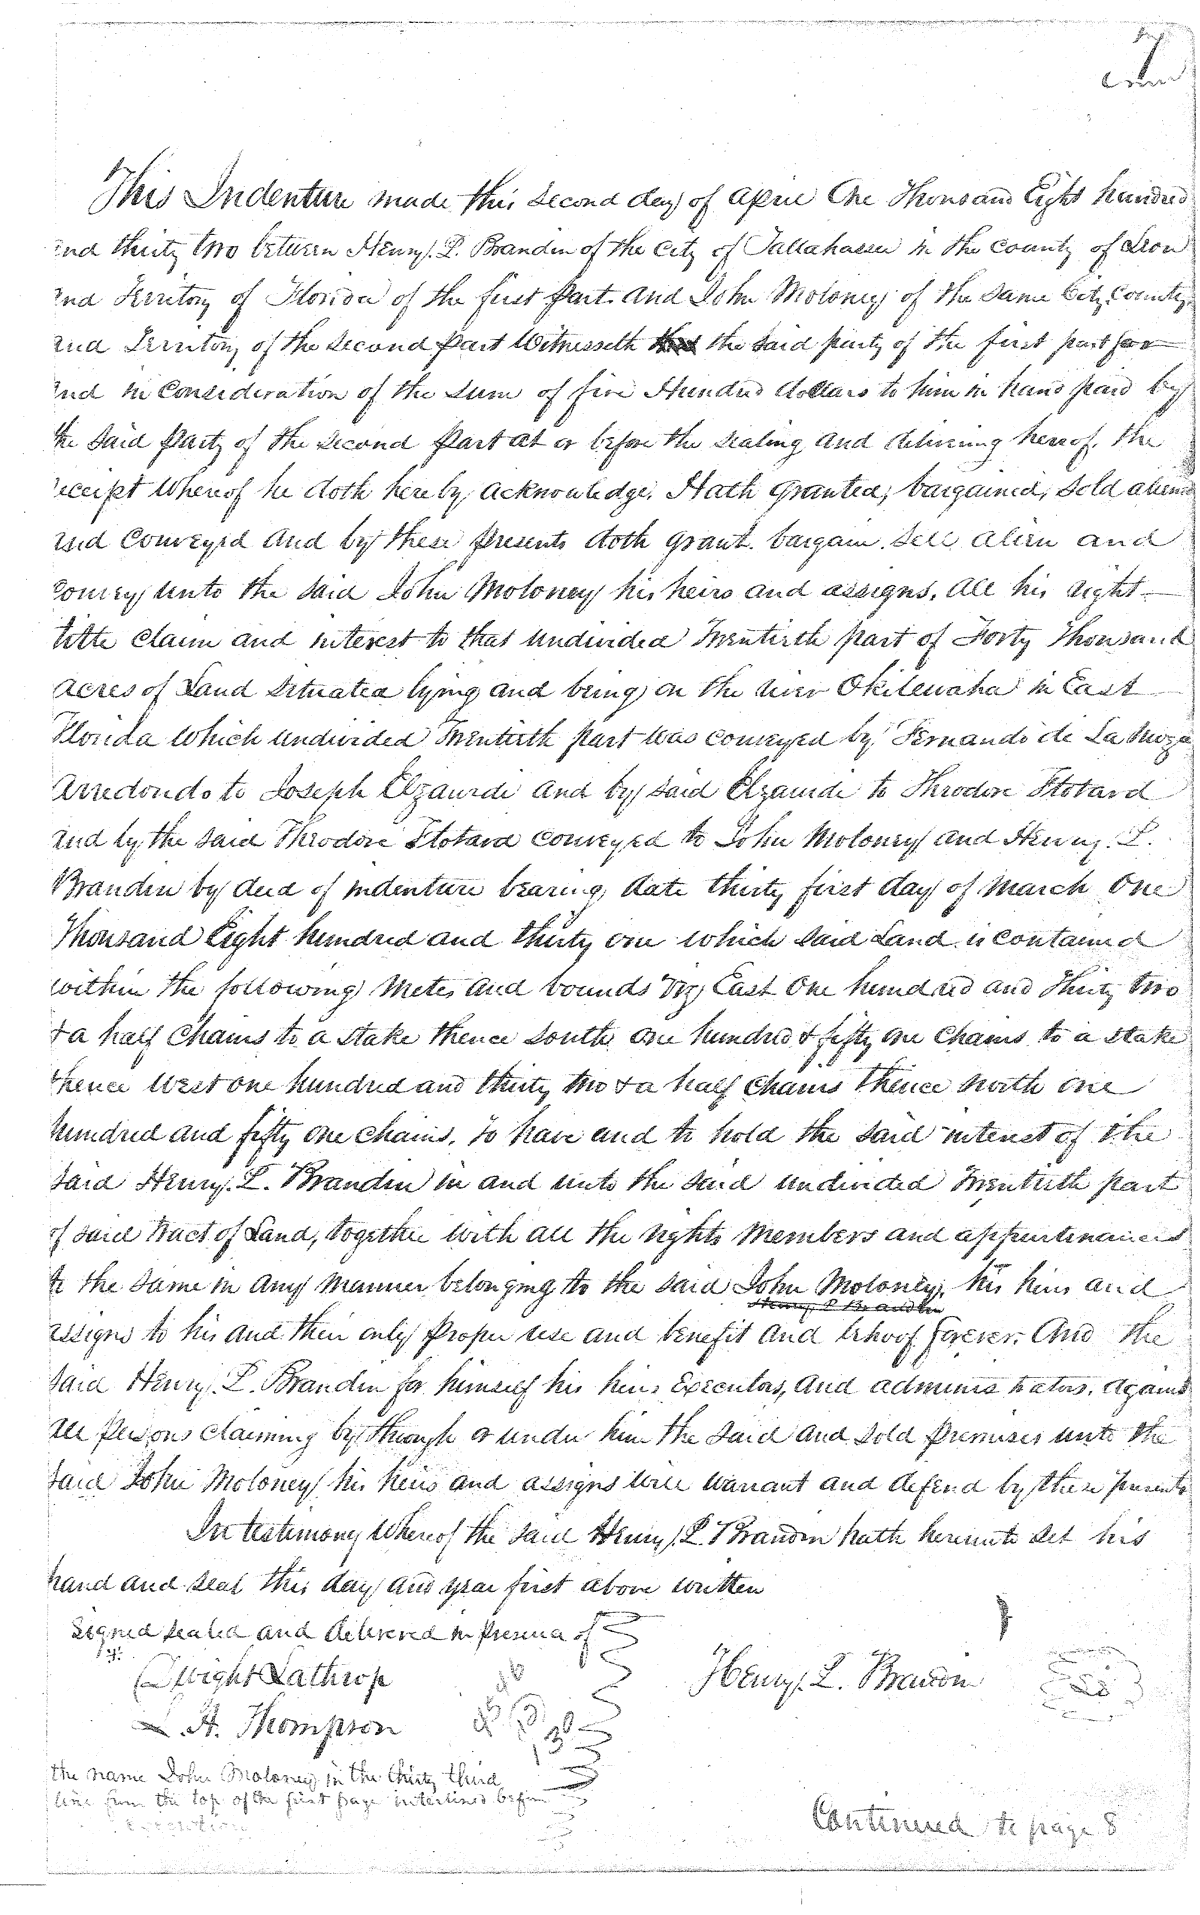 7
This Indenture made this second day of April One Thousand Eight hundred
and thirty two between Henry. L. Brandin of the City of Tallahassee in the county of Leon
and Territory of Florida of the first part. and John Moloney of the same City, County,
and Territory of the second part Witnesseth the said party of the first part for
and in consideration of the sum of five Hundred dollars to him in hand paid by
the said Party of the second Part at or before the sealing and delivering hereof, the
receipt Whereof he doth hereby acknowledge. Hath granted, bargained, Sold aliened
and Conveyed and by these presents doth grant. bargain. Sell Alien and
convey unto the said John Moloney his heirs and assigns, all his right
title claim and interest to that undivided Twentieth part of Forty Thousand
Acres of Land Situated lying and being on the river Okilewaha in East
Florida which undivided Twentieth part was conveyed by Fernando de La Maza
Arredondo to Joseph Elzaurdi and by said Elzaurdi to Theodore Flotard
and by the said Theodore Flotard conveyed to John Moloney and Henry. L.
Brandin by deed of indenture bearing date thirty first day of March One
Thousand Eight hundred and thirty one which said Land is contained
within the following Metes and bounds Viz East One hundred and Thirty two
& a half Chains to a stake thence South one hundred & fifty one Chains to a stake
thence West one hundred and thirty two & a half Chains thence North one
hundred and fifty one Chains. To have and to hold the said interest of the
said Henry. L. Brandin in and unto the said undivided Twentieth part
of said tract of Land, together with all the rights Members and appurtenances
to the same in any manner belonging to the said John Moloney, his heirs and
Henry L Brandin
assigns to his and their only proper use and benefit and behoof forever. And the
said Henry. L. Brandin for himself his heirs Executors, and administrators, against
all persons claiming by through or under him the said and sold premises unto the
said John Moloney his heirs and assigns will warrant and defend by these presents
In testimony Whereof the said Henry. L. Brandin hath hereunto set his
hand and seal this day and year first above written
Signed sealed and delivered in presence of
Dwight Lathrop
Henry. L. Brandin
L. A. Thompson
the name John Moloney in the thirty third
line from the top of the first page interlined before
execution
Continued to page 8